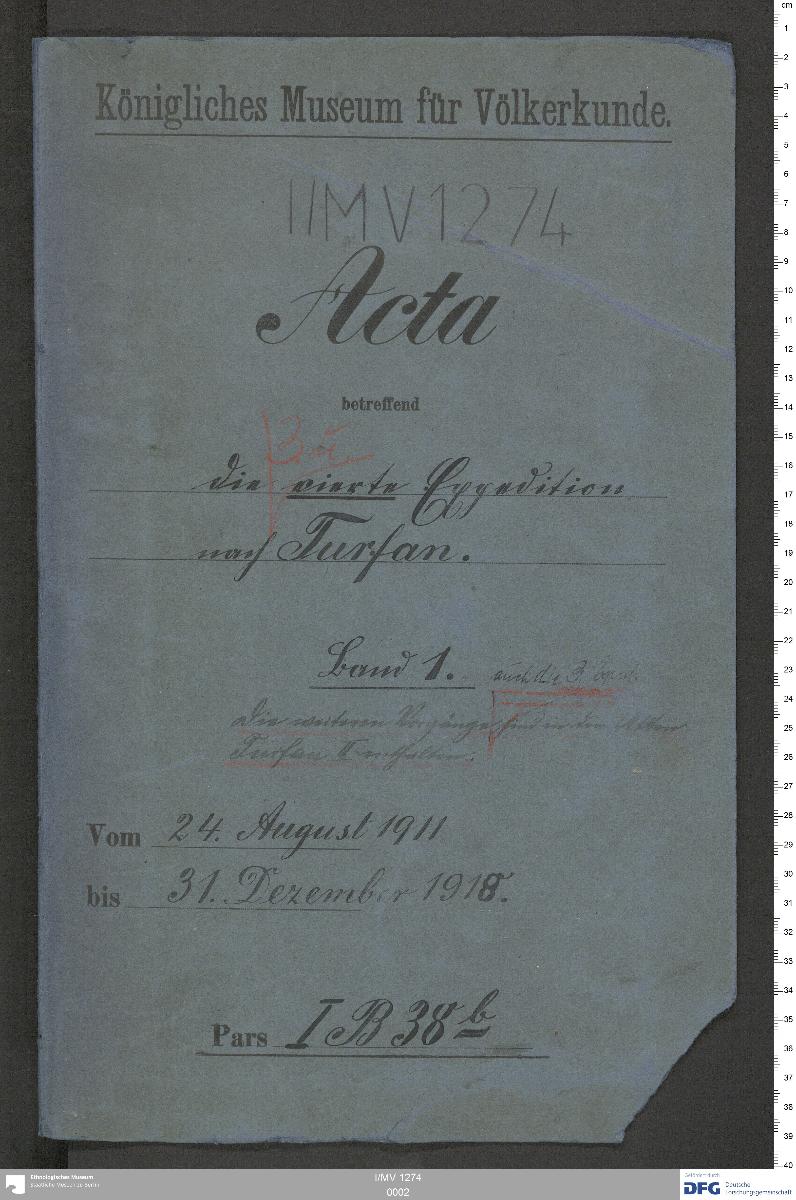 Königliches Museum für Völkerkunde.
I/MV 1274
Acta
betreffend
3. u.
die vierte Expedition
nach Turfan.
Band 1.
auch die 3.
Die weiteren Vorgänge sind in den Akten
Turfan II enthalten.
Vom 24. August 1911
bis 31. Dezember 1918.
Pars I B 38 b
Ethnologisches Museum
Staatliche Museen zu Berlin
I/MV 1274
0002
Gefördert durch
DFG Deutsche
Forschungsgemeinschaft
cm
1
2
3
4
5
6
7
8
9
10
11
12
13
14
15
16
17
18
19
20
21
22
23
24
25
26
27
28
29
30
31
32
33
34
35
36
37
38
39
40